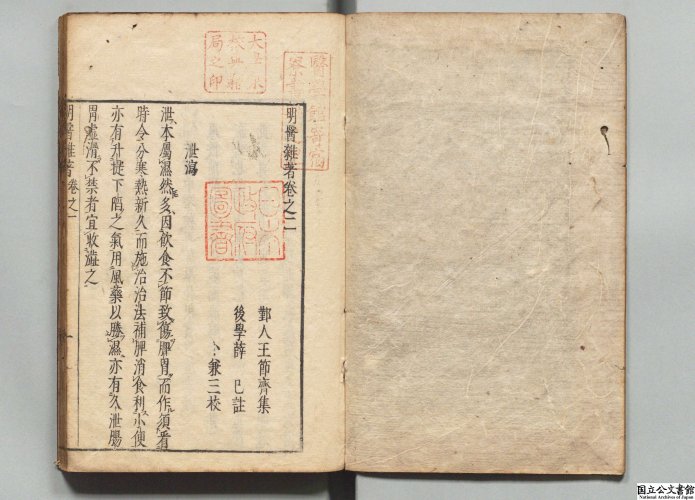 明醫雜著卷之二
鄞人王節齋集
後學薛 已註
卜兼三校
泄瀉
泄本屬濕然多因飲食不節致傷脾胃而作須看
時令分寒熱新久而施治治法補脾消食利小便
亦有升提下陷之氣用風藥以勝濕亦有久泄腸
胃虛滑不禁者宜收澁之
明醫雜著卷之二
一
日本
政府
圖書
國立公文書館
National Archives of Japan